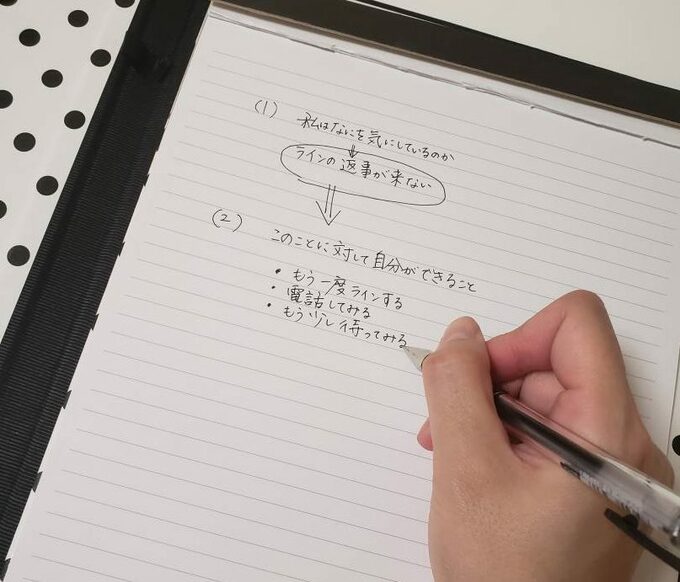 (1) 私はなにを気にしているのか
ラインの返事が来ない
(2) このことに対して自分ができること
• もう一度ラインする
• 電話してみる
• もう少し待ってみる